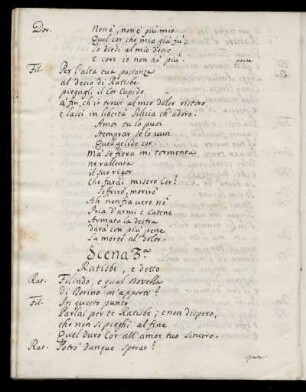 Dor. Non è, non è più mio
Quel cor che mio già fù
Lo diedi al mio diletto
e core io non hò più. parte
Fil. Per l'alta tua possanza
al desio di Ratisbe
piegagli il Cor Cupido,
a fin, ch'io trovi al mio dolor ristoro
e lasci in libertà Silvia ch'adoro.
Amor tu lo puoi
Stemprar se lo vuoi
Quel gelido cor.
Ma se fiera mi tormenta
ne rallenta
il suo rigor
che farai misero Cor?
Soffrirò, morirò
Ah non fia vero nò
Pria d'armi e catene
Armata la destra
darà con più pene
La morte al dolor.
Scena 3.a
Ratisbe, e detto
Rat. Filindo, e qual novella
di Dorino m'apporti?
Fil. In questo punto
Parlai per te Ratisbe; e non dispero,
che non si pieghi al fine
Quel duro Cor all'amor tuo sincero.
Rat. Potrò dunque sperar?